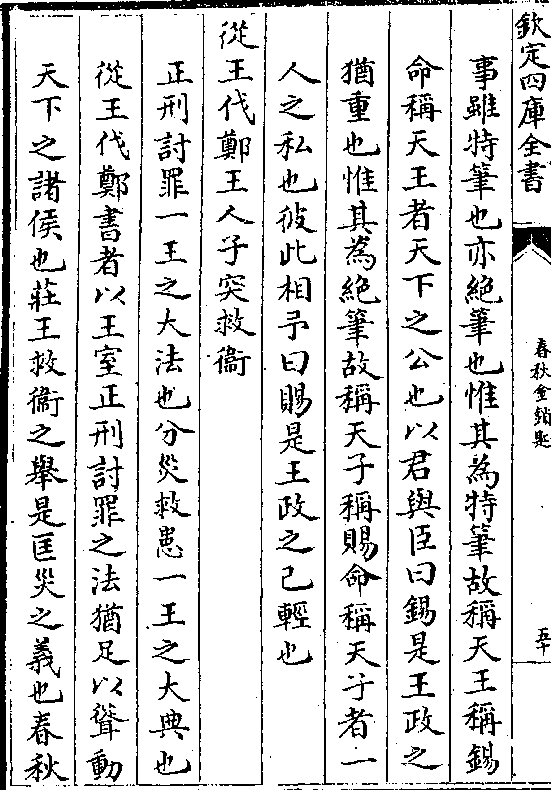 欽定四庫全書
春秋金鎖匙
五十
事雖特筆也亦絕筆也惟其為特筆故稱天王稱錫
命稱天王者天下之公也以君與臣曰錫是王政之
猶重也惟其為絕筆故稱天子稱賜命稱天子者一
人之私也彼此相予曰賜是王政之已輕也
從王伐鄭王人子突救衞
正刑討罪一王之大法也分災救患一王之大典也
從王伐鄭書者以王室正刑討罪之法猶足以聳動
天下之諸侯也莊王救衞之舉是匡災之義也春秋